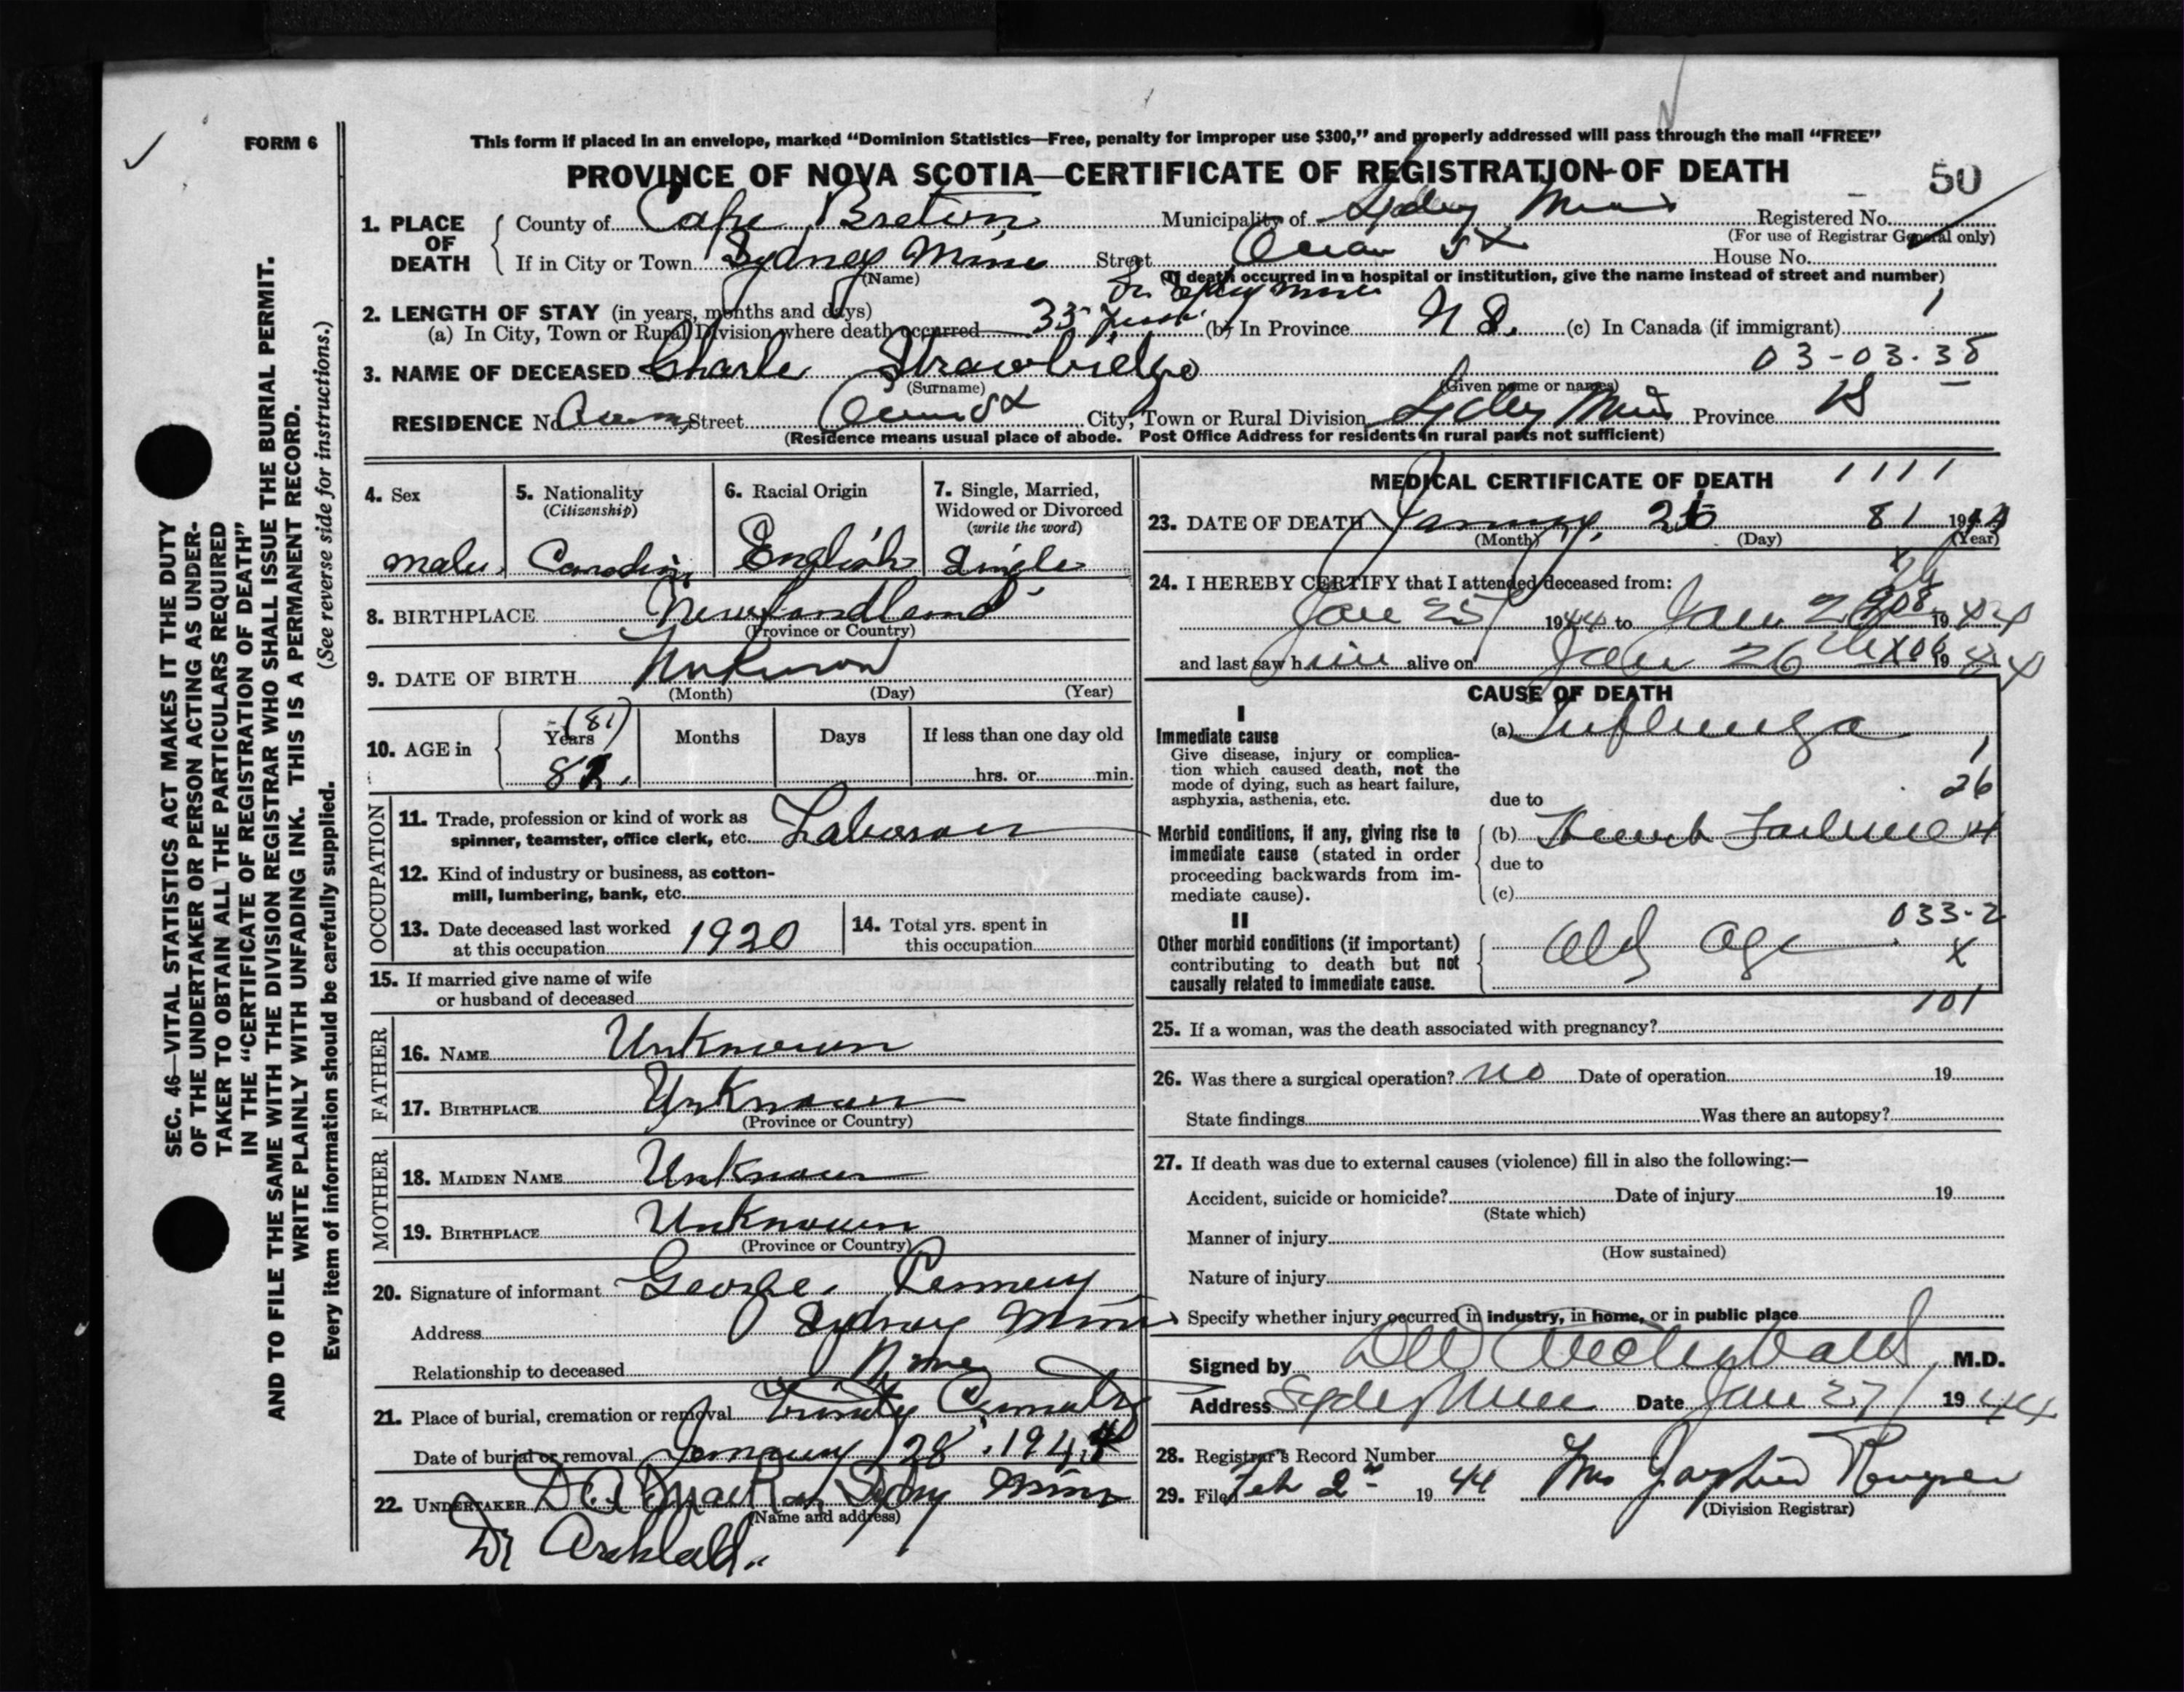 FORM 6
This form if placed in an envelope, marked “Dominion Statistics—Free, penalty for improper use $300,” and properly addressed will pass through the mail “FREE”
PROVINCE OF NOVA SCOTIA—CERTIFICATE OF REGISTRATION OF DEATH
50
1. PLACE OF DEATH
County of Cape Breton Municipality of Sydney Mines Registered No.
(For use of Registrar General only)
If in City or Town Sydney Mines Street Ocean St House No.
(Name) (If death occurred in a hospital or institution, give the name instead of street and number)
2. LENGTH OF STAY (in years, months and days) In Sydney Mines
(a) In City, Town or Rural Division where death occurred 35 years (b) In Province N S. (c) In Canada (if immigrant) 1
03-03-38
3. NAME OF DECEASED Charle Strawbridge
(Surname) (Given name or names)
RESIDENCE No. Street Ocean St City, Town or Rural Division Sydney Mines Province NS
(Residence means usual place of abode. Post Office Address for residents in rural parts not sufficient)
4. Sex
male
5. Nationality
(Citizenship)
Canadian
6. Racial Origin
English
7. Single, Married, Widowed or Divorced
(write the word)
Single
8. BIRTHPLACE Newfoundland
(Province or Country)
9. DATE OF BIRTH Unknown
(Month) (Day) (Year)
10. AGE in
Years Months Days If less than one day old
(81)
hrs. or min.
OCCUPATION
11. Trade, profession or kind of work as
spinner, teamster, office clerk, etc. Labourer
12. Kind of industry or business, as cotton-
mill, lumbering, bank, etc.
13. Date deceased last worked
at this occupation 1920
14. Total yrs. spent in
this occupation
15. If married give name of wife
or husband of deceased
FATHER
16. NAME Unknown
17. BIRTHPLACE Unknown
(Province or Country)
MOTHER
18. MAIDEN NAME Unknown
19. BIRTHPLACE Unknown
(Province or Country)
20. Signature of informant George Penney
Address Sydney Mines
Relationship to deceased None
21. Place of burial, cremation or removal Trinity Cemetry
Date of burial or removal January 28, 1944
22. UNDERTAKER D A MacRae Sydney Mines
(Name and address)
Dr Archbald
MEDICAL CERTIFICATE OF DEATH 1111
23. DATE OF DEATH January, 26 81 1944
(Month) (Day) (Year)
24. I HEREBY CERTIFY that I attended deceased from:
Jan 25 1944 to Jan 26 1944
and last saw him alive on Jan 26 1944
CAUSE OF DEATH
I
Immediate cause
Give disease, injury or complica-
tion which caused death, not the
mode of dying, such as heart failure,
asphyxia, asthenia, etc.
(a) Influenza
1
26
due to
Morbid conditions, if any, giving rise to
immediate cause (stated in order
proceeding backwards from im-
mediate cause).
(b) Heart Failure
due to
(c)
033-2
II
Other morbid conditions (if important)
contributing to death but not
causally related to immediate cause.
Old Age
X
101
25. If a woman, was the death associated with pregnancy?
26. Was there a surgical operation? no Date of operation 19
State findings Was there an autopsy?
27. If death was due to external causes (violence) fill in also the following:—
Accident, suicide or homicide? Date of injury 19
(State which)
Manner of injury
(How sustained)
Nature of injury
Specify whether injury occurred in industry, in home, or in public place
Signed by Archibald M.D.
Address Sydney Mines Date Jan 27 1944
28. Registrar's Record Number
29. Filed Feb 2nd 1944 Mrs
(Division Registrar)
SEC. 46—VITAL STATISTICS ACT MAKES IT THE DUTY
OF THE UNDERTAKER OR PERSON ACTING AS UNDER-
TAKER TO OBTAIN ALL THE PARTICULARS REQUIRED
IN THE “CERTIFICATE OF REGISTRATION OF DEATH”
AND TO FILE THE SAME WITH THE DIVISION REGISTRAR WHO SHALL ISSUE THE BURIAL PERMIT.
WRITE PLAINLY WITH UNFADING INK. THIS IS A PERMANENT RECORD.
Every item of information should be carefully supplied. (See reverse side for instructions.)